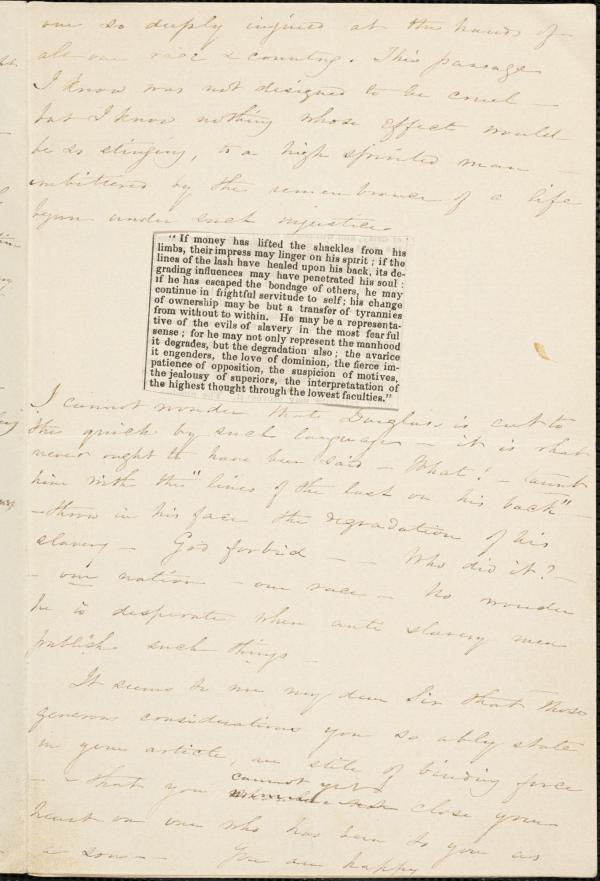 one so deeply injured at the hands of
all our race & country. This passage
I know was not designed to be cruel —
but I know nothing whose effect would
be so stinging, to a high spirited man —
embittered by the remembrance of a life
begun under such injustice
"If money has lifted the shackles from his
limbs, their impress may linger on his spirit; if the
lines of the lash have healed upon his back, its de-
grading influences may have penetrated his soul:
if he has escaped the bondage of others, he may
continue in frightful servitude to self; his change
of ownership may be but a transfer of tyrannies
from without to within. He may be a representa-
tive of the evils of slavery in the most fearful
sense; for he may not only represent the manhood
it degrades, but the degradation also; the avarice
it engenders, the love of dominion, the fierce im-
patience of opposition, the suspicion of motives,
the jealousy of superiors, the interpretatation of
the highest thought through the lowest faculties."
I cannot wonder that Douglass is cut to
the quick by such language — it is what
never ought to have been said — What! — taunt
him with the "lines of the lash on his back" —
— throw in his face the degradation of his
slavery — God forbid — — Who did it? —
— our nation — our race — No wonder
he is desperate when anti slavery men
publish such things —
It seems to me my dear Sir that those
generous considerations you so ably state
in your article, are still of binding force
— that you cannot yet close your
heart on one who has been to you as
a son — You are happy